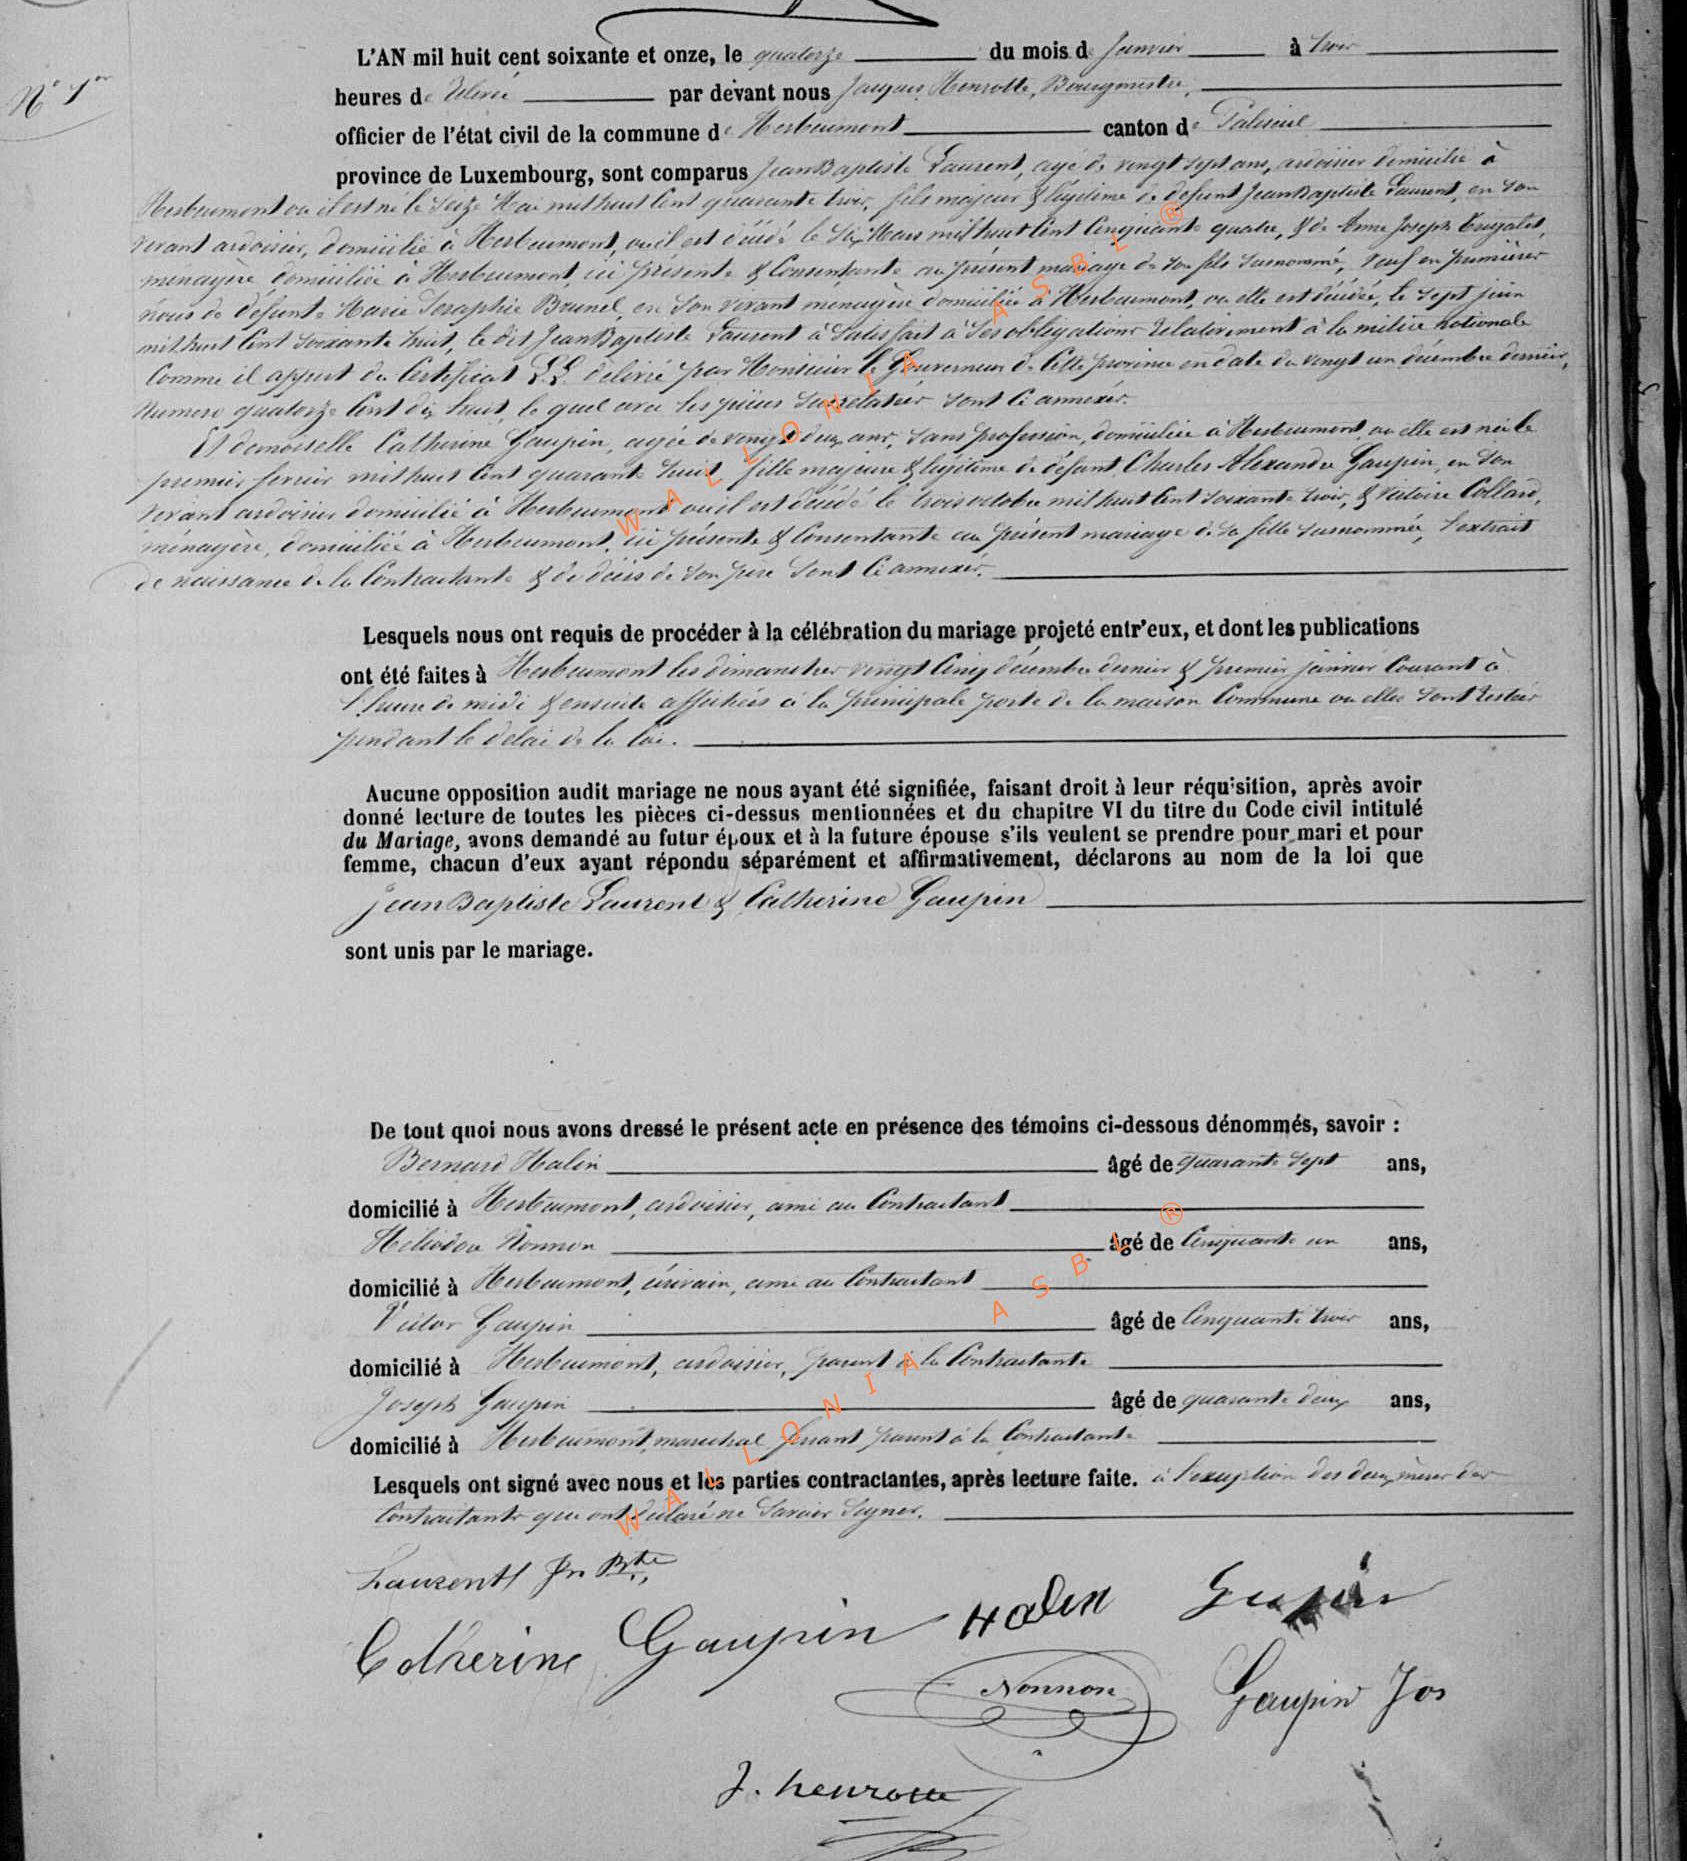 N° 1er
L'AN mil huit cent soixante et onze, le quatorze du mois de Janvier à trois
heures de relevée par devant nous Jacques Henrotte, Bourgmestre,
officier de l'état civil de la commune de Herbeumont canton de Paliseul
province de Luxembourg, sont comparus Jean Baptiste Laurent, agé de vingt sept ans, ardoisier domicilié à
Herbeumont où il est né le seize Mai mil huit Cent quarante trois, fils majeur & légitime de défunt Jean Baptiste Laurent, en son
vivant ardoisier, domicilié à Herbeumont, où il est décédé le dix Mars mil huit Cent Cinquante quatre, & de Anne Joseph
ménagère domiciliée à Herbeumont, ici présente & Consentante au présent mariage de son fils surnommé, veuf en premières
nôces de défunte Marie Seraphie Brunel, en son vivant ménagère domiciliée à Herbeumont, où elle est décédée, le sept juin
mil huit Cent soixante huit, le dit Jean Baptiste Laurent à satisfait à ses obligations relativement à la milice nationale
Comme il appert du Certificat L.L. délivré par Monsieur le Gouverneur de Cette province en date du vingt un décembre dernier,
Numero quatorze Cent dix huit, le quel avec les pièces susrelatées sont Ci annexés.
Et demoiselle Catherine Gaupin, agée de vingt deux ans, sans profession, domiciliée à Herbeumont, où elle est née le
premier février mil huit Cent quarante huit, fille majeure & légitime de défunt Charles Alexandre Gaupin, en son
vivant ardoisier domicilié à Herbeumont où il est décédé le trois octobre mil huit Cent soixante trois, & Victoire Collard,
ménagère, domiciliée à Herbeumont, ici présente & Consentante au présent mariage de sa fille surnommée, l'extrait
de naissance de la Contractante & de décès de son père sont Ci annexés.
Lesquels nous ont requis de procéder à la célébration du mariage projeté entr'eux, et dont les publications
ont été faites à Herbeumont les dimanches vingt Cinq décembre dernier & premier janvier Courant à
l'heure de midi & ensuite affichées à la principale porte de la maison Commune où elles sont restées
pendant le délai de la loi.
Aucune opposition audit mariage ne nous ayant été signifiée, faisant droit à leur réquisition, après avoir
donné lecture de toutes les pièces ci-dessus mentionnées et du chapitre VI du titre du Code civil intitulé
du Mariage, avons demandé au futur époux et à la future épouse s'ils veulent se prendre pour mari et pour
femme, chacun d'eux ayant répondu séparément et affirmativement, déclarons au nom de la loi que
Jean Baptiste Laurent & Catherine Gaupin
sont unis par le mariage.
De tout quoi nous avons dressé le présent acte en présence des témoins ci-dessous dénommés, savoir :
Bernard Halin âgé de quarante sept ans,
domicilié à Herbeumont, ardoisier, ami au Contractant
Héliodore Nonnon âgé de Cinquante un ans,
domicilié à Herbeumont, écrivain, ami au Contractant
Victor Gaupin âgé de Cinquante trois ans,
domicilié à Herbeumont, ardoisier, parent à la Contractante
Joseph Gaupin âgé de quarante deux ans,
domicilié à Herbeumont, maréchal ferrant parent à la Contractante
Lesquels ont signé avec nous et les parties contractantes, après lecture faite. à l'exception des deux mères des
Contractants qui ont déclaré ne Savoir Signer.
Laurent Jn Bte
Catherine Gaupin Halin Gupin
Nonnon Gaupin Jos
J. henrotte
WALLONIA ASBL ®
WALLONIA ASBL ®